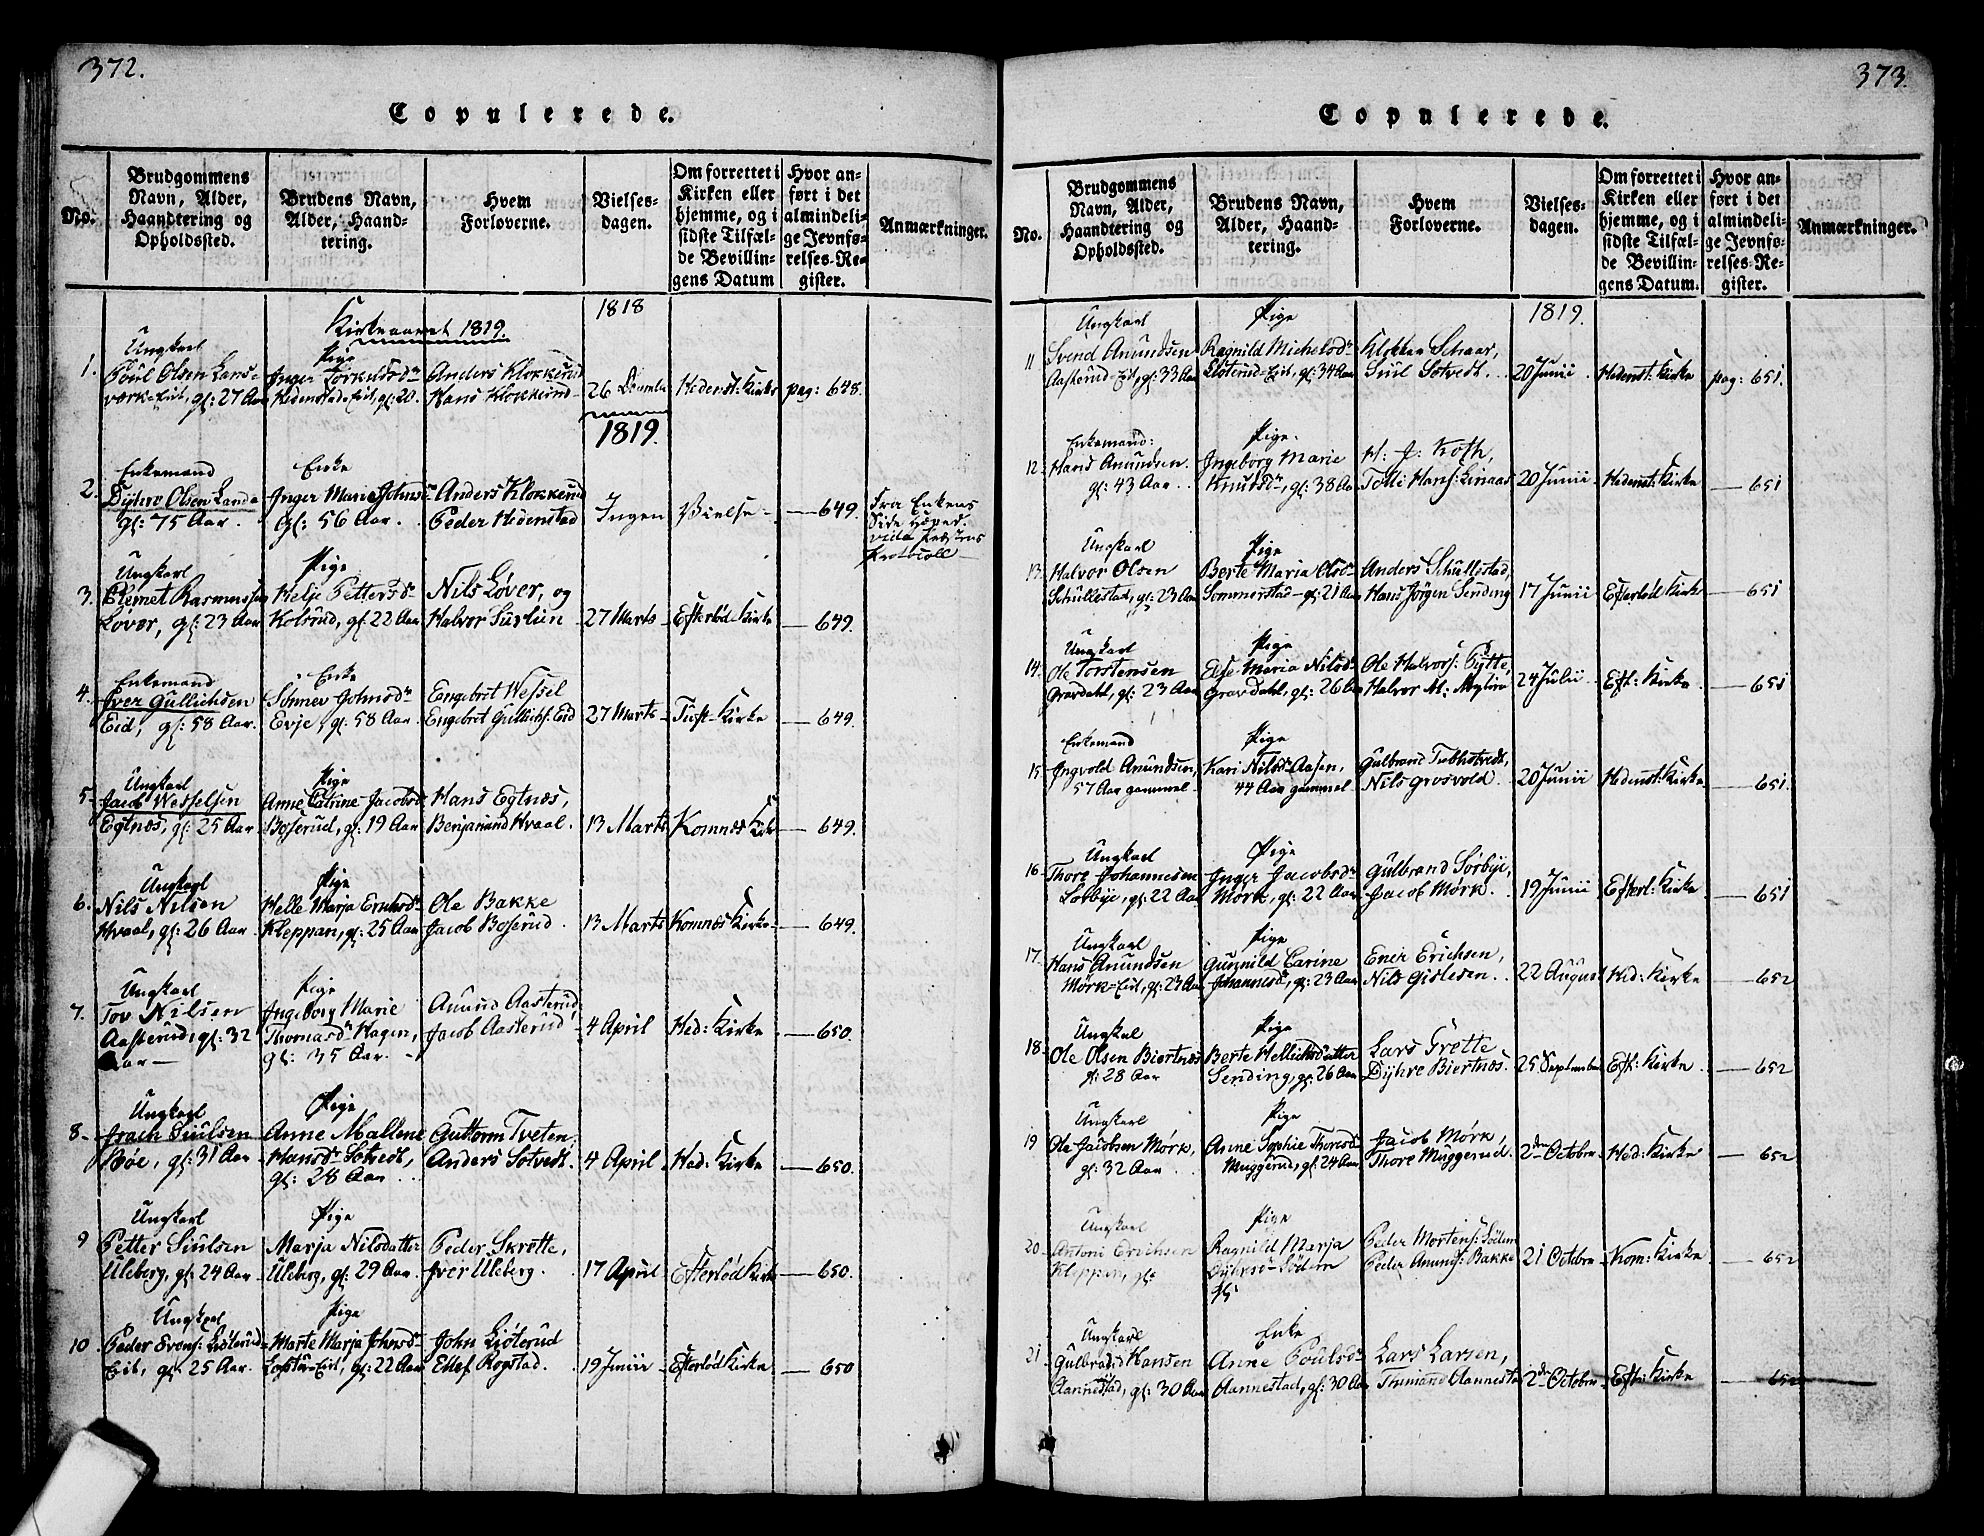 372.
Copulerede.
No.
Brudgommens
Navn, Alder,
Haandtering og
Opholdssted.
Brudens Navn,
Alder, Haand-
tering.
Hvem
Forloverne.
Vielses-
dagen.
Om forrettet i
Kirken eller
hjemme, og i
sidste Tilfæl-
de Bevillin-
gens Datum
Hvor an-
ført i det
almindeli-
ge Jevnfø-
relses-Re-
gister.
Anmærkninger.
1818
Kirkeaaret 1819.
1.
Ungkarl
Poul Olsen Lans-
værk-Eie, gl: 27 Aar
Pige
Inger
Hedenstad-Eie, gl: 20.
Anders Klokkerud
Hans Klokkerud
26 Decembr
Hedenst: Kirke
pag: 648.
1819.
2.
Enkemand
Dyhre Olsen Lande
gl: 75 Aar.
Enke
Inger Marie Johnsdr
gl: 56 Aar.
Anders Klokkerud
Peder Hedenstad
Ingen
Vielse
649.
Fra Enkens
Side
vide
Protocoll
3.
Ungkarl
Clemet Rasmussen
Løver, gl: 23 Aar
Pige
Helje Pettersdr
Kolsrud, gl: 22 Aar
Nils Løver, og
Halvor
27 Marts
Efterlød Kirke
649.
4.
Enkemand
Iver Gullichsen
Eid, gl: 58 Aar.
Enke
Sønnev Johnsdr
Evje, gl: 58 Aar.
Engebret Wessel
Engebret Gullichs: Eid
27 Marts
Tuft-Kirke
649.
5
Ungkarl
Jacob Wesselsen
Egtnes, gl: 25 Aar.
Pige
Anne Catrine Jacobsd
Boserud, gl: 19 Aar
Hans Egtnæs,
Benjamind Hvaal.
13 Marts
Komnes Kirke
649.
6.
Ungkarl
Nils Nilsen
Hvaal, gl: 26 Aar.
Pige
Helle Marja
Kleppan, gl: 25 Aar
Ole Bakke
Jacob Boserud
13 Marts
Komnæs Kirke
649.
7.
Ungkarl
Tov Nilsen
Aasterud, gl: 32
Aar
Pige
Ingeborg Marie
Thomasdr Hagen,
gl: 35 Aar.
Anund Aasterud,
Jacob Aasterud
4 April
Hed: Kirke
650.
8
Ungkarl
Isach Siulsen
Bøe, gl: 31 Aar
Pige
Anne Mallene
Hansdr Sotvedt,
gl: 28 Aar
Guttorm Tveten,
Anders Sotvedt.
4 April
Hed: Kirke
650.
9
Ungkarl
Petter Siulsen
Uleberg, gl: 24 Aar
Pige
Marja Nilsdatter
Uleberg, gl: 29 Aar.
Peder Skrette,
Iver Uleberg.
17 April
Efterlød Kirke
650.
10.
Ungkarl
Peder Svens: Liøterud
Eie, gl: 25 Aar.
Pige
Marte Marja Johnsdr
Eie, gl: 22 Aar
John Liøterud
Ellef Rogstad.
19 Junii
Efterlød Kirke
650
373.
Copulerede.
No.
Brudgommens
Navn, Alder,
Haandtering og
Opholdssted.
Brudens Navn,
Alder, Haand-
tering.
Hvem
Forloverne.
Vielses-
dagen.
Om forrettet i
Kirken eller
hjemme, og i
sidste Tilfæl-
de Bevillin-
gens Datum.
Hvor an-
ført i det
almindeli-
ge Jevnfø-
relses-Re-
gister.
Anmærkninger.
1819.
11
Ungkarl
Svend Anundsen
Aasterud-Eie, gl: 33 Aar
Pige
Ragnild Michelsdr
Eie, gl: 34 Aar
Klokker Schaar,
Siul Sotvedt.
20 Junii
Hedenst: Kirke
pag: 651.
12.
Enkemand:
Hans Anundsen.
gl: 43 Aar.
Pige.
Ingeborg Marie
Knudsdr, gl: 38 Aar
H: J: Koth,
Hans: Linaas
20 Junii
Hedenst: Kirke
651
13.
Ungkarl
Halvor Olsen
Schullestad, gl: 23 Aar
Pige
Berte Maria Olsdr
Sommerstad gl: 21 Aar
Anders Schullestad,
Hans Jørgen Sending
17 Junii
Efterlød Kirke
651
14.
Ungkarl
Ole Torstensen
Gravdahl, gl: 23 Aar
Pige
Else Maria Nilsdr
Gravdahl, gl: 26 Aar
Ole Halvors: Pytte,
Halvor M:
24 Julii
Eft: Kirke
651
15
Enkemand
Ingvold Anundsen,
57 Aar gammel
Pige
Kari Nilsdr Aasen,
44 Aar gammel
Gulbrand
Nils Grosvold
20 Junii
Hedenst: Kirke
651.
16
Ungkarl
Thore Johannesen
Sørbye, gl: 22 Aar
Pige
Inger Jacobsdr
Mørk, gl: 22 Aar
Gulbrand Sørbye,
Jacob Mørk.
19 Junii
Efterl: Kirke
651
17.
Ungkarl
Hans Anundsen
Mørk-Eie, gl: 23 Aar
Pige
Gunnild Carine
Johannesdr, gl: 23 Aar
Ener Erichsen,
Nils Gislesen.
22 August
Hed: Kirke
652
18
Ungkal
Ole Olsen Biertnæs
gl: 28 Aar
Pige
Berte Hellichsdatter
Sending, gl: 26 Aar
Lars Trette
Dyhre Biertnæs.
25 September
Eft: Kirke
652
19
Ungkarl
Ole Jacobsen Mørk,
gl: 32 Aar
Pige
Anne Sophie Thoresdr
Muggerud, gl: 24 Aar
Jacob Mørk,
Thore Muggerud.
2den October
Hed: Kirke
652
20
Ungkarl
Antoni Erichsen
Kleppan, gl:
Pige
Ragnild Marja
Dyhresdr Sødem
Peder Mortens: Sødem
Peder Anunds: Bakke
21 October
Kom: Kirke
652
21
Ungkarl
Gulbrand Hansen
Aannestad, gl: 30 Aar
Enke
Anne Poulsdr
Aannestad, gl: 30 Aar
Lars Larsen,
Aannestad
2den October
Eft: Kirke
652